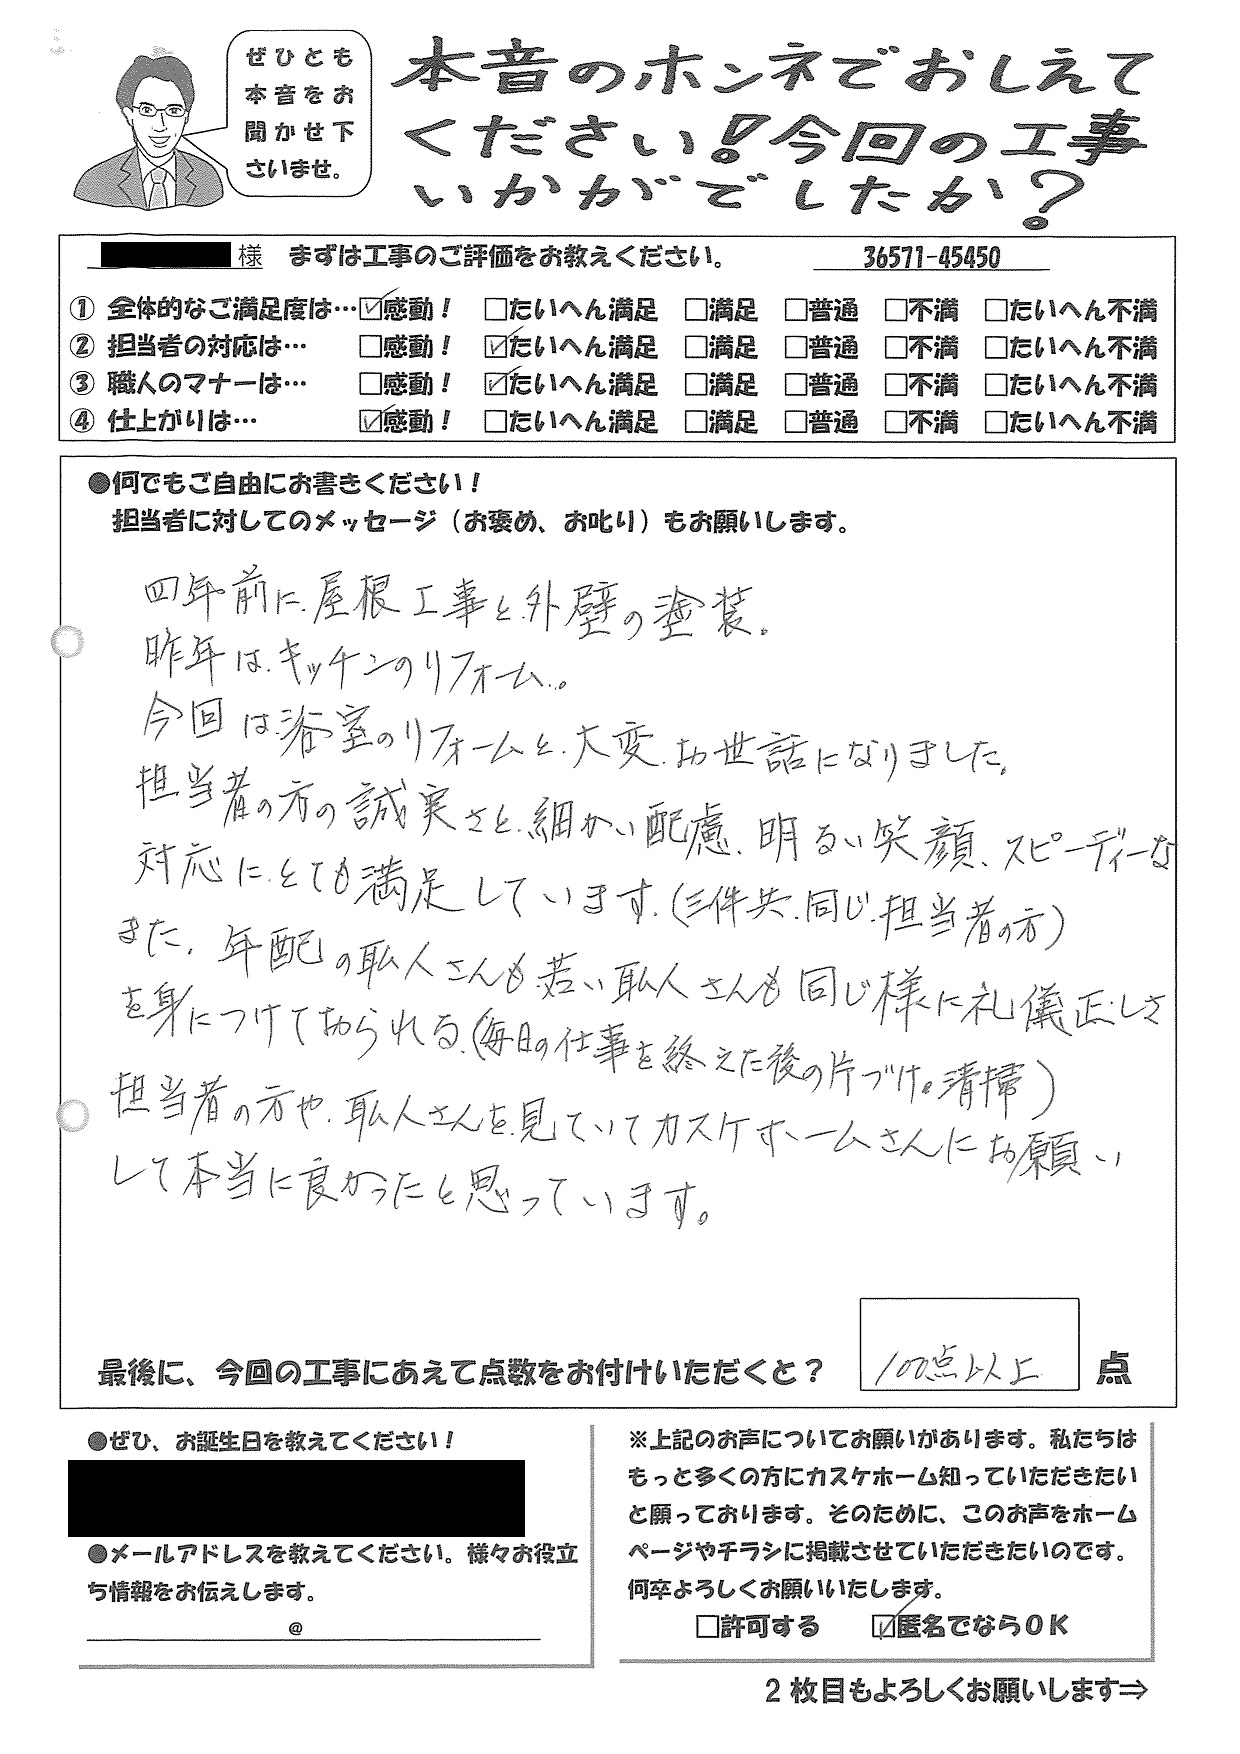 ぜひとも
本音をお
聞かせ下
さいませ。
本音のホンネでおしえて
ください!今回の工事
いかがでしたか?
様 まずは工事のご評価をお教えください。 36571-45450
① 全体的なご満足度は… ☑感動! □たいへん満足 □満足 □普通 □不満 □たいへん不満
② 担当者の対応は… □感動! ☑たいへん満足 □満足 □普通 □不満 □たいへん不満
③ 職人のマナーは… □感動! ☑たいへん満足 □満足 □普通 □不満 □たいへん不満
④ 仕上がりは… ☑感動! □たいへん満足 □満足 □普通 □不満 □たいへん不満
●何でもご自由にお書きください!
担当者に対してのメッセージ(お褒め、お叱り)もお願いします。
四年前に、屋根工事と、外壁の塗装。
昨年は、キッチンのリフォーム。
今回は浴室のリフォームと、大変、お世話になりました。
担当者の方の誠実さと、細かい配慮、明るい笑顔、スピーディーな
対応に、とても満足しています。(三件共、同じ、担当者の方)
また、年配の職人さんも若い職人さんも同じ様に礼儀正しさ
を身につけておられる。(毎日の仕事を終えた後の片づけ。清掃)
担当者の方や、職人さんを、見ていてカスケホームさんにお願い
して本当に良かったと思っています。
最後に、今回の工事にあえて点数をお付けいただくと? 100点以上 点
●ぜひ、お誕生日を教えてください!
●メールアドレスを教えてください。様々お役立
ち情報をお伝えします。
@
※上記のお声についてお願いがあります。私たちは
もっと多くの方にカスケホーム知っていただきたい
と願っております。そのために、このお声をホーム
ページやチラシに掲載させていただきたいのです。
何卒よろしくお願いいたします。
□許可する ☑匿名でならOK
2枚目もよろしくお願いします⇒